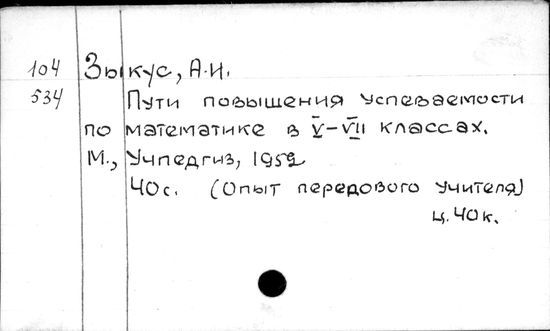 104 Зыкус, А.И.
534 Пути повышения успеваемости
по математике в V-VII классах.
М., Учпедгиз, 1952
40с. (Опыт передового учителя)
ц. 40к.